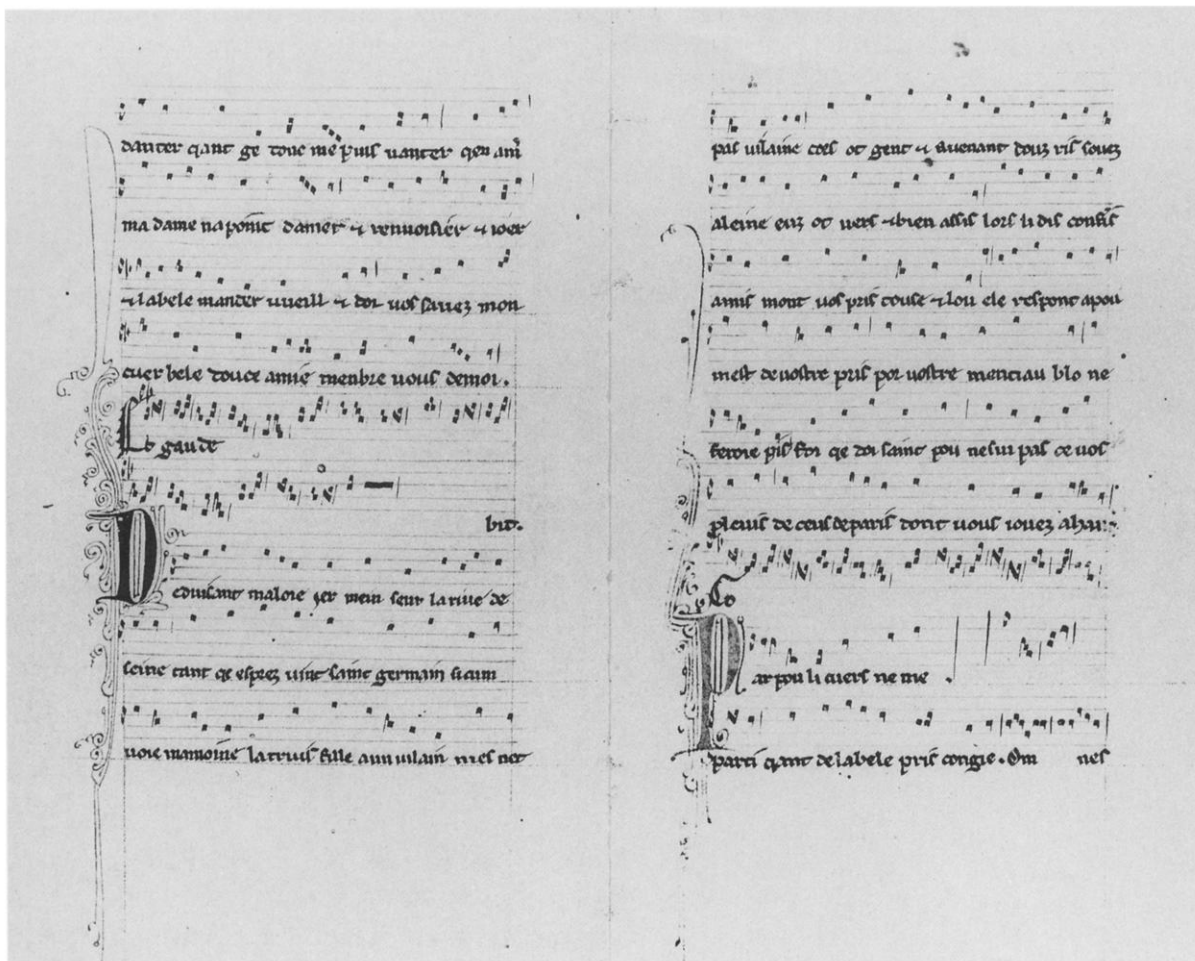 danter qant ge touc me puis uanter qen am
ma dame na point damer & renuoisier & ioer
& labele mander uueill & doi uos sauez mon
cuer bele douce amie menbre uous demoi.
Et gaude
bit.
Deduisant maloie ier mein seur la riue de
seine tant qe esprez uint saint germain si aun
uoie mamoine la truis fille aun uilain mes net
pas uilaine cors ot gent & auenant douz ris souez
aleine euz ot uers & bien assis lors li dis
amis mont uos pris touse & lou ele respont apou
mest de uostre pris por uostre ne
feroie pis foi qe doi saint pou ne sui pas de uos
pleuis de ceus de paris dont uous iouez ahan
Go
Par pou li cuers ne me
parti qant de labele pris congie. Om nes